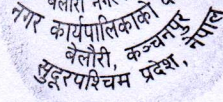 नगर कार्यपालिकाको
बेलौरी, कञ्चनपुर
सुदूरपश्चिम प्रदेश, नेपाल